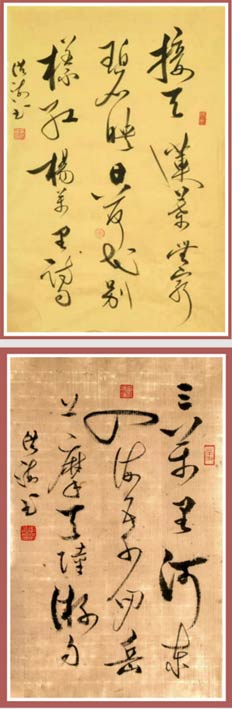 接天蓮葉無窮
碧映日荷花別
樣紅楊萬里詩
三萬里河東
入海五千仞岳
上摩天陸游句